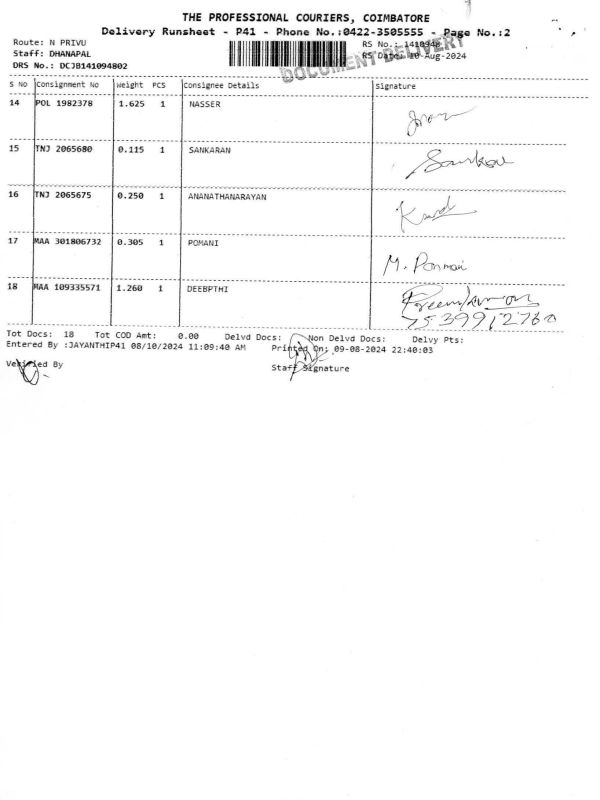 THE PROFESSIONAL COURIERS, COIMBATORE
Delivery Runsheet - P41 - Phone No.:0422-3505555 - Page No.:2
Route: N PRIVU
RS No.: 1410948
Staff: DHANAPAL
RS Date: 10-Aug-2024
DRS No.: DCJB141094802
DOCUMENT DELIVERY
S No Consignment No Weight PCS Consignee Details Signature
14 POL 1982378 1.625 1 NASSER
15 TNJ 2065680 0.115 1 SANKARAN
16 TNJ 2065675 0.250 1 ANANATHANARAYAN
17 MAA 301806732 0.305 1 POMANI M.
18 MAA 109335571 1.260 1 DEEBPTHI
7539912760
Tot Docs: 18 Tot COD Amt: 0.00 Delvd Docs: Non Delvd Docs: Delvy Pts:
Entered By :JAYANTHIP41 08/10/2024 11:09:40 AM Printed On: 09-08-2024 22:40:03
Verified By Staff Signature